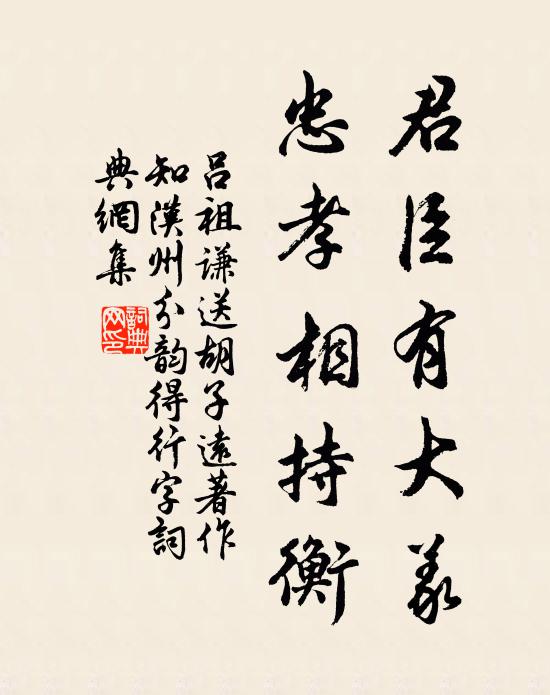 君臣有大義
忠孝相持衡
吕祖謙送胡子遠著作
知漢州分韵得行字詞
典網集
詞典网印